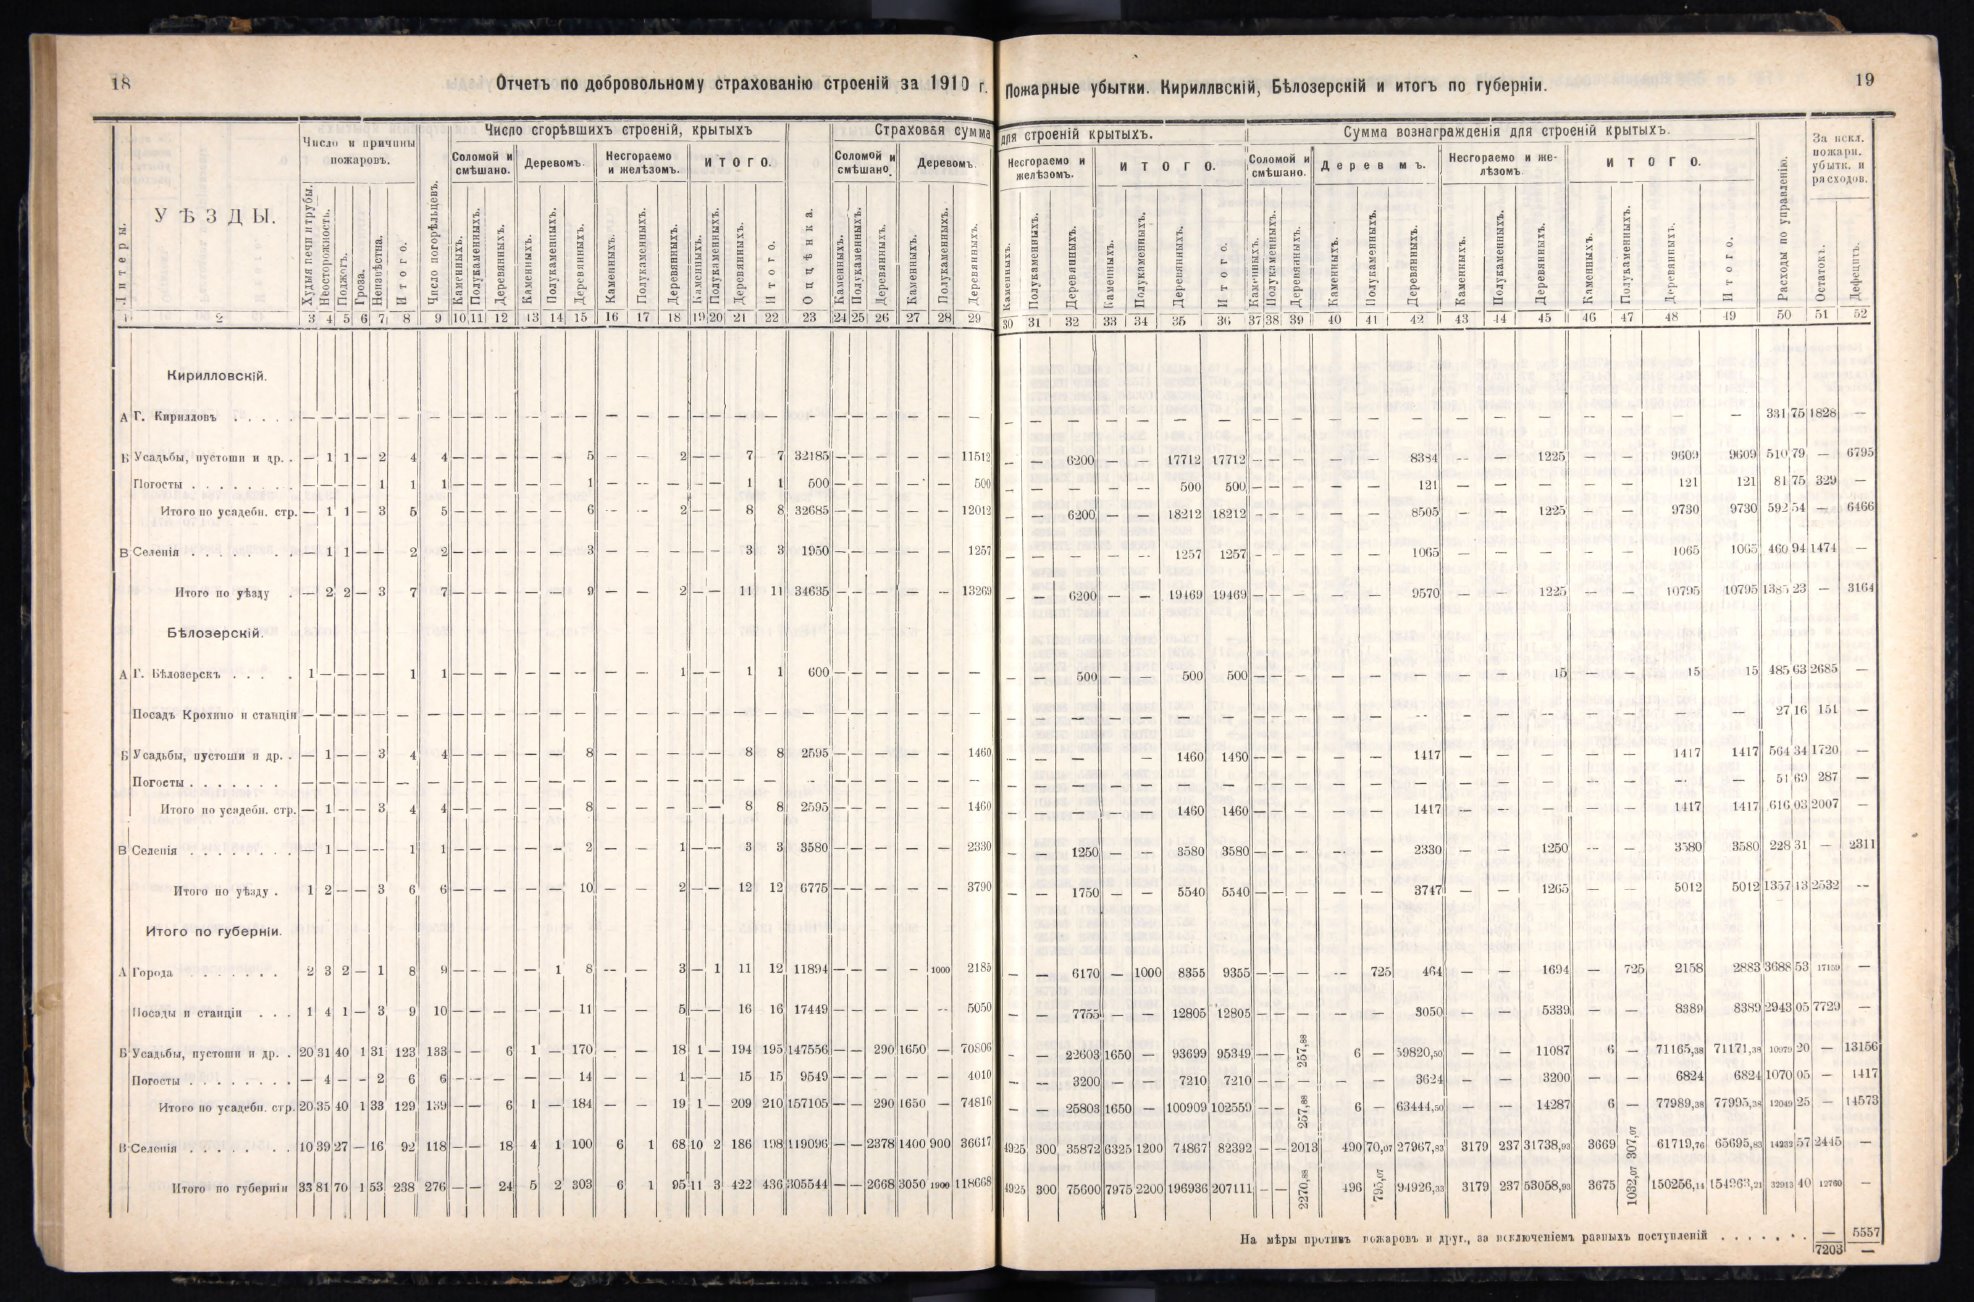 18
Отчетъ по добровольному страхованію строеній за 1910 г.
Литеры.
УѢЗДЫ.
Число и причины пожаровъ.
Худыя печи и трубы.
Неосторожность.
Поджогъ.
Гроза.
Неизвѣстна.
Итого.
Число погорѣльцевъ.
Число сгорѣвшихъ строеній, крытыхъ
Соломой и смѣшано.
Деревомъ.
Несгораемо и желѣзомъ.
ИТОГО.
Каменныхъ.
Полукаменныхъ.
Деревянныхъ.
Каменныхъ.
Полукаменныхъ.
Деревянныхъ.
Каменныхъ.
Полукаменныхъ.
Деревянныхъ.
Каменныхъ.
Полукаменныхъ.
Деревянныхъ.
Итого.
Оцѣнка.
Страховая сумма
Соломой и смѣшано.
Деревомъ.
Каменныхъ.
Полукаменныхъ.
Деревянныхъ.
Каменныхъ.
Полукаменныхъ.
Деревянныхъ.
1 2 3 4 5 6 7 8 9 10 11 12 13 14 15 16 17 18 19 20 21 22 23 24 25 26 27 28 29
Кирилловскій.
А Г. Кирилловъ . . . . . — — — — — — — — — — — — — — — — — — — — — — — — — — —
Б Усадьбы, пустоши и др. . — 1 1 — 2 4 4 — — — — — 5 — — 2 — — 7 7 32185 — — — — — 11512
Погосты . . . . . . . . — — — — 1 1 1 — — — — — 1 — — — — — 1 1 500 — — — — — 500
Итого по усадебн. стр. — 1 1 — 3 5 5 — — — — — 6 — — 2 — — 8 8 32685 — — — — — 12012
В Селенія . . . . . . . . — 1 1 — — 2 2 — — — — — 3 — — — — — 3 3 1950 — — — — — 1257
Итого по уѣзду . — 2 2 — 3 7 7 — — — — — 9 — — 2 — — 11 11 34635 — — — — — 13269
Бѣлозерскій.
А Г. Бѣлозерскъ . . . . 1 — — — — 1 1 — — — — — — — — 1 — — 1 1 600 — — — — — —
Посадъ Крохино и станціи — — — — — — — — — — — — — — — — — — — — — — — — — — —
Б Усадьбы, пустоши и др. . — 1 — — 3 4 4 — — — — — 8 — — — — — 8 8 2595 — — — — — 1460
Погосты . . . . . . . — — — — — — — — — — — — — — — — — — — — — — — — — — —
Итого по усадебн. стр. — 1 — — 3 4 4 — — — — — 8 — — — — — 8 8 2595 — — — — — 1460
В Селенія . . . . . . . . — 1 — — — 1 1 — — — — — 2 — — 1 — — 3 3 3580 — — — — — 2330
Итого по уѣзду . 1 2 — — 3 6 6 — — — — — 10 — — 2 — — 12 12 6775 — — — — — 3790
Итого по губерніи.
А Города . . . . . . . 2 3 2 — 1 8 9 — — — — 1 8 — — 3 — 1 11 12 11894 — — — — 1000 2185
Посады и станціи . . . 1 4 1 — 3 9 10 — — — — — 11 — — 5 — — 16 16 17449 — — — — — 5050
Б Усадьбы, пустоши и др. . 20 31 40 1 31 123 133 — — 6 1 — 170 — — 18 1 — 194 195 147556 — — 290 1650 — 70806
Погосты . . . . . . . . — 4 — — 2 6 6 — — — — — 14 — — 1 — — 15 15 9549 — — — — — 4010
Итого по усадебн. стр. 20 35 40 1 33 129 139 — — 6 1 — 184 — — 19 1 — 209 210 157105 — — 290 1650 — 74816
В Селенія . . . . . . . 10 39 27 — 16 92 118 — — 18 4 1 100 6 1 68 10 2 186 198 119096 — — 2378 1400 900 36617
Итого по губерніи 33 81 70 1 53 238 276 — — 24 5 2 303 6 1 95 11 3 422 436 305544 — — 2668 3050 1900 118668
Пожарные убытки. Кириллвскій, Бѣлозерскій и итогъ по губерніи.
19
для строеній крытыхъ.
Несгораемо и желѣзомъ.
ИТОГО.
Каменныхъ.
Полукаменныхъ.
Деревянныхъ.
Каменныхъ.
Полукаменныхъ.
Деревянныхъ.
Итого.
Сумма вознагражденія для строеній крытыхъ.
Соломой и смѣшано.
Дерев мъ.
Несгораемо и желѣзомъ.
ИТОГО.
Каменныхъ.
Полукаменныхъ.
Деревянныхъ.
Каменныхъ.
Полукаменныхъ.
Деревянныхъ.
Каменныхъ.
Полукаменныхъ.
Деревянныхъ.
Каменныхъ.
Полукаменныхъ.
Деревянныхъ.
Итого.
Расходы по управленію.
За искл. пожарн. убытк. и расходов.
Остатокъ.
Дефецитъ.
30 31 32 33 34 35 36 37 38 39 40 41 42 43 44 45 46 47 48 49 50 51 52
— — — — — — — — — — — — — — — — — — — — 331 75 1828 —
— — 6200 — — 17712 17712 — — — — — 8384 — — 1225 — — 9609 9609 510 79 — 6795
— — — — — 500 500 — — — — — 121 — — — — — 121 121 81 75 329 —
— — 6200 — — 18212 18212 — — — — — 8505 — — 1225 — — 9730 9730 592 54 — 6466
— — — — — 1257 1257 — — — — — 1065 — — — — — 1065 1065 460 94 1474 —
— — 6200 — — 19469 19469 — — — — — 9570 — — 1225 — — 10795 10795 1385 23 — 3164
— — 500 — — 500 500 — — — — — — — — 15 — — 15 15 485 63 2685 —
— — — — — — — — — — — — — — — — — — — — 27 16 151 —
— — — — — 1460 1460 — — — — — 1417 — — — — — 1417 1417 564 34 1720 —
— — — — — — — — — — — — — — — — — — — — 51 69 287 —
— — — — — 1460 1460 — — — — — 1417 — — — — — 1417 1417 616 03 2007 —
— — 1250 — — 3580 3580 — — — — — 2330 — — 1250 — — 3580 3580 228 31 — 2311
— — 1750 — — 5540 5540 — — — — — 3747 — — 1265 — — 5012 5012 1357 13 2532 —
— — 6170 — 1000 8355 9355 — — — — 725 464 — — 1694 — 725 2158 2883 3688 53 17159 —
— — 7755 — — 12805 12805 — — — — — 3050 — — 5339 — — 8389 8389 2943 05 7729 —
— — 22603 1650 — 93699 95349 — — 257,88 6 — 59820,50 — — 11087 6 — 71165,38 71171,38 10979 20 — 13156
— — 3200 — — 7210 7210 — — — — — 3624 — — 3200 — — 6824 6824 1070 05 — 1417
— — 25803 1650 — 100909 102559 — — 257,88 6 — 63444,50 — — 14287 6 — 77989,38 77995,38 12049 25 — 14573
4925 300 35872 6325 1200 74867 82392 — — 2013 490 70,07 27967,83 3179 237 31738,93 3669 307,07 61719,76 65695,83 14232 57 2445 —
4925 300 75600 7975 2200 196936 207111 — — 2270,88 496 795,07 94926,33 3179 237 53058,93 3675 1032,07 150256,14 154963,21 32913 40 12760 —
На мѣры противъ пожаровъ и друг., за исключеніемъ разныхъ поступленій . . . . . . . — 5557
7203 —